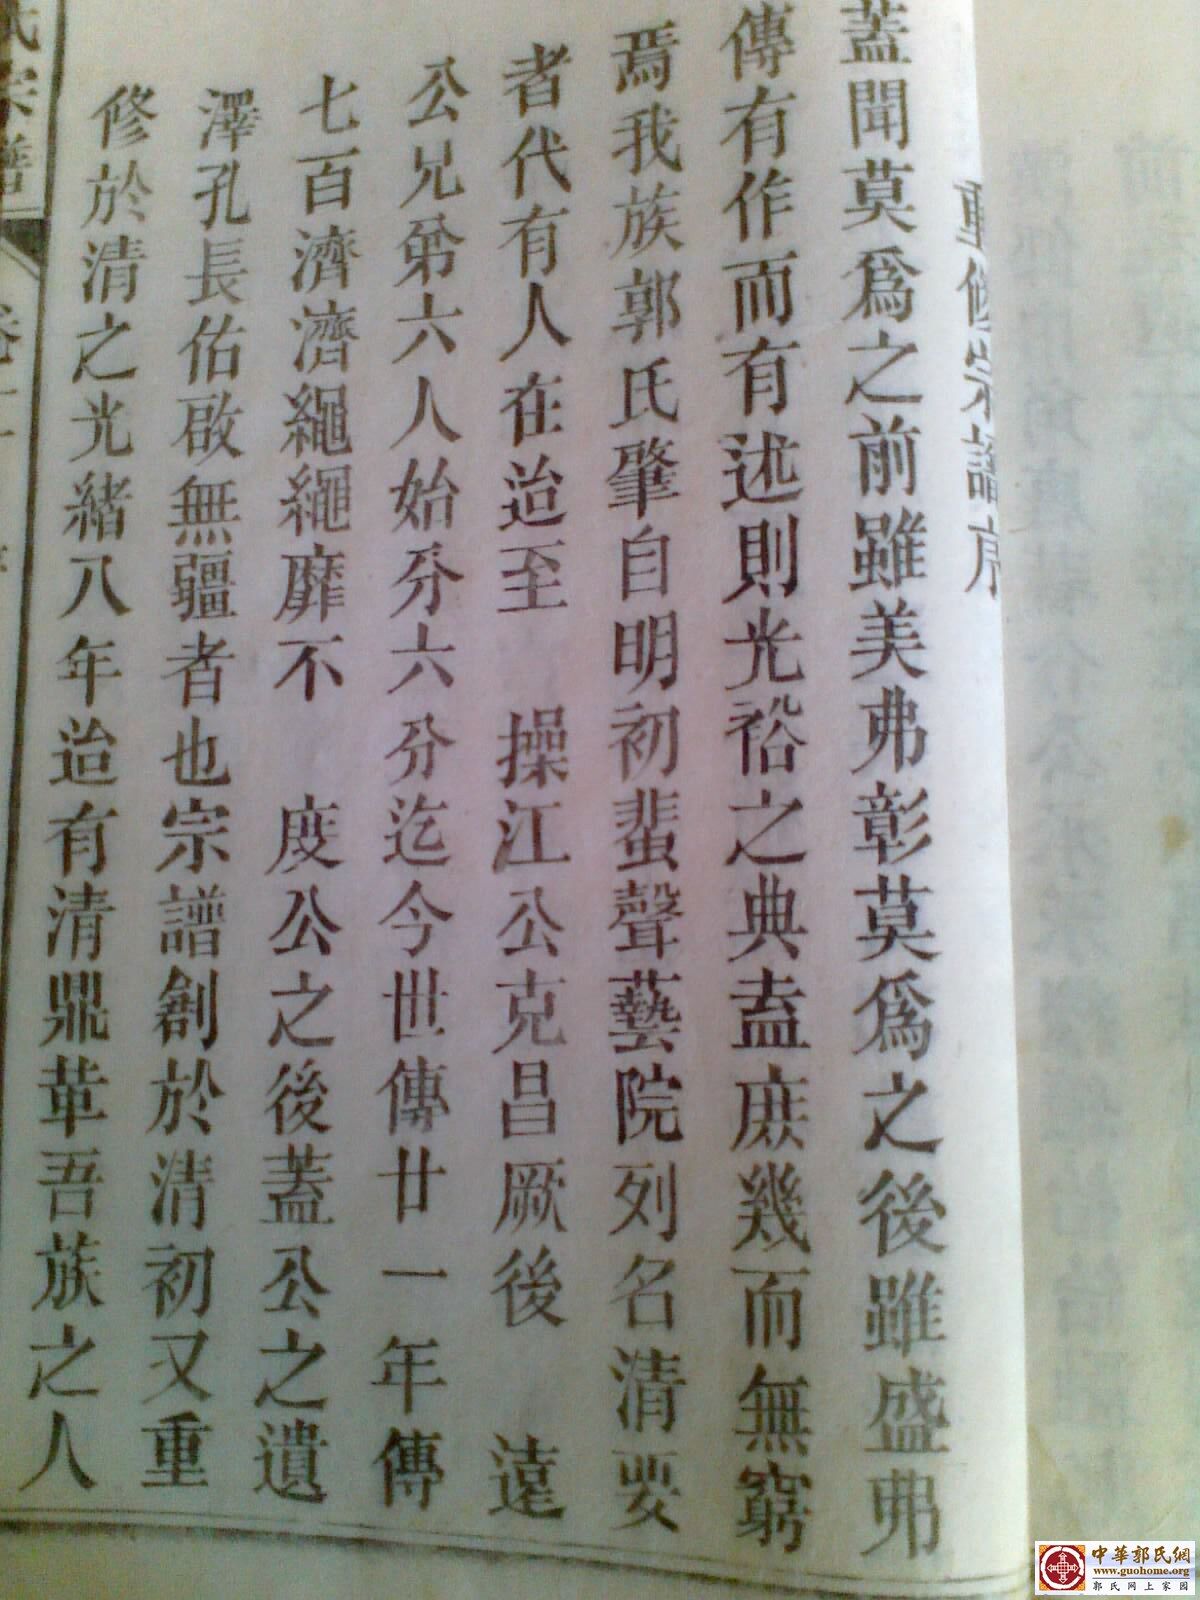 重修宗譜序
蓋聞莫爲之前雖美弗彰莫爲之後雖盛弗
傳有作而有述則光裕之典葢庶幾而無窮
焉我族郭氏肇自明初蜚聲藝院列名清要
者代有人在迨至 操江公克昌厥後 遠
公兄弟六人始分六分迄今世傳廿一年傳
七百濟濟繩繩靡不 度公之後蓋公之遺
澤孔長佑啟無疆者也宗譜創於清初又重
修於清之光緒八年迨有清鼎革吾族之人
氏宗譜
中華郭氏網
www.guohome.org
郭氏网上家园